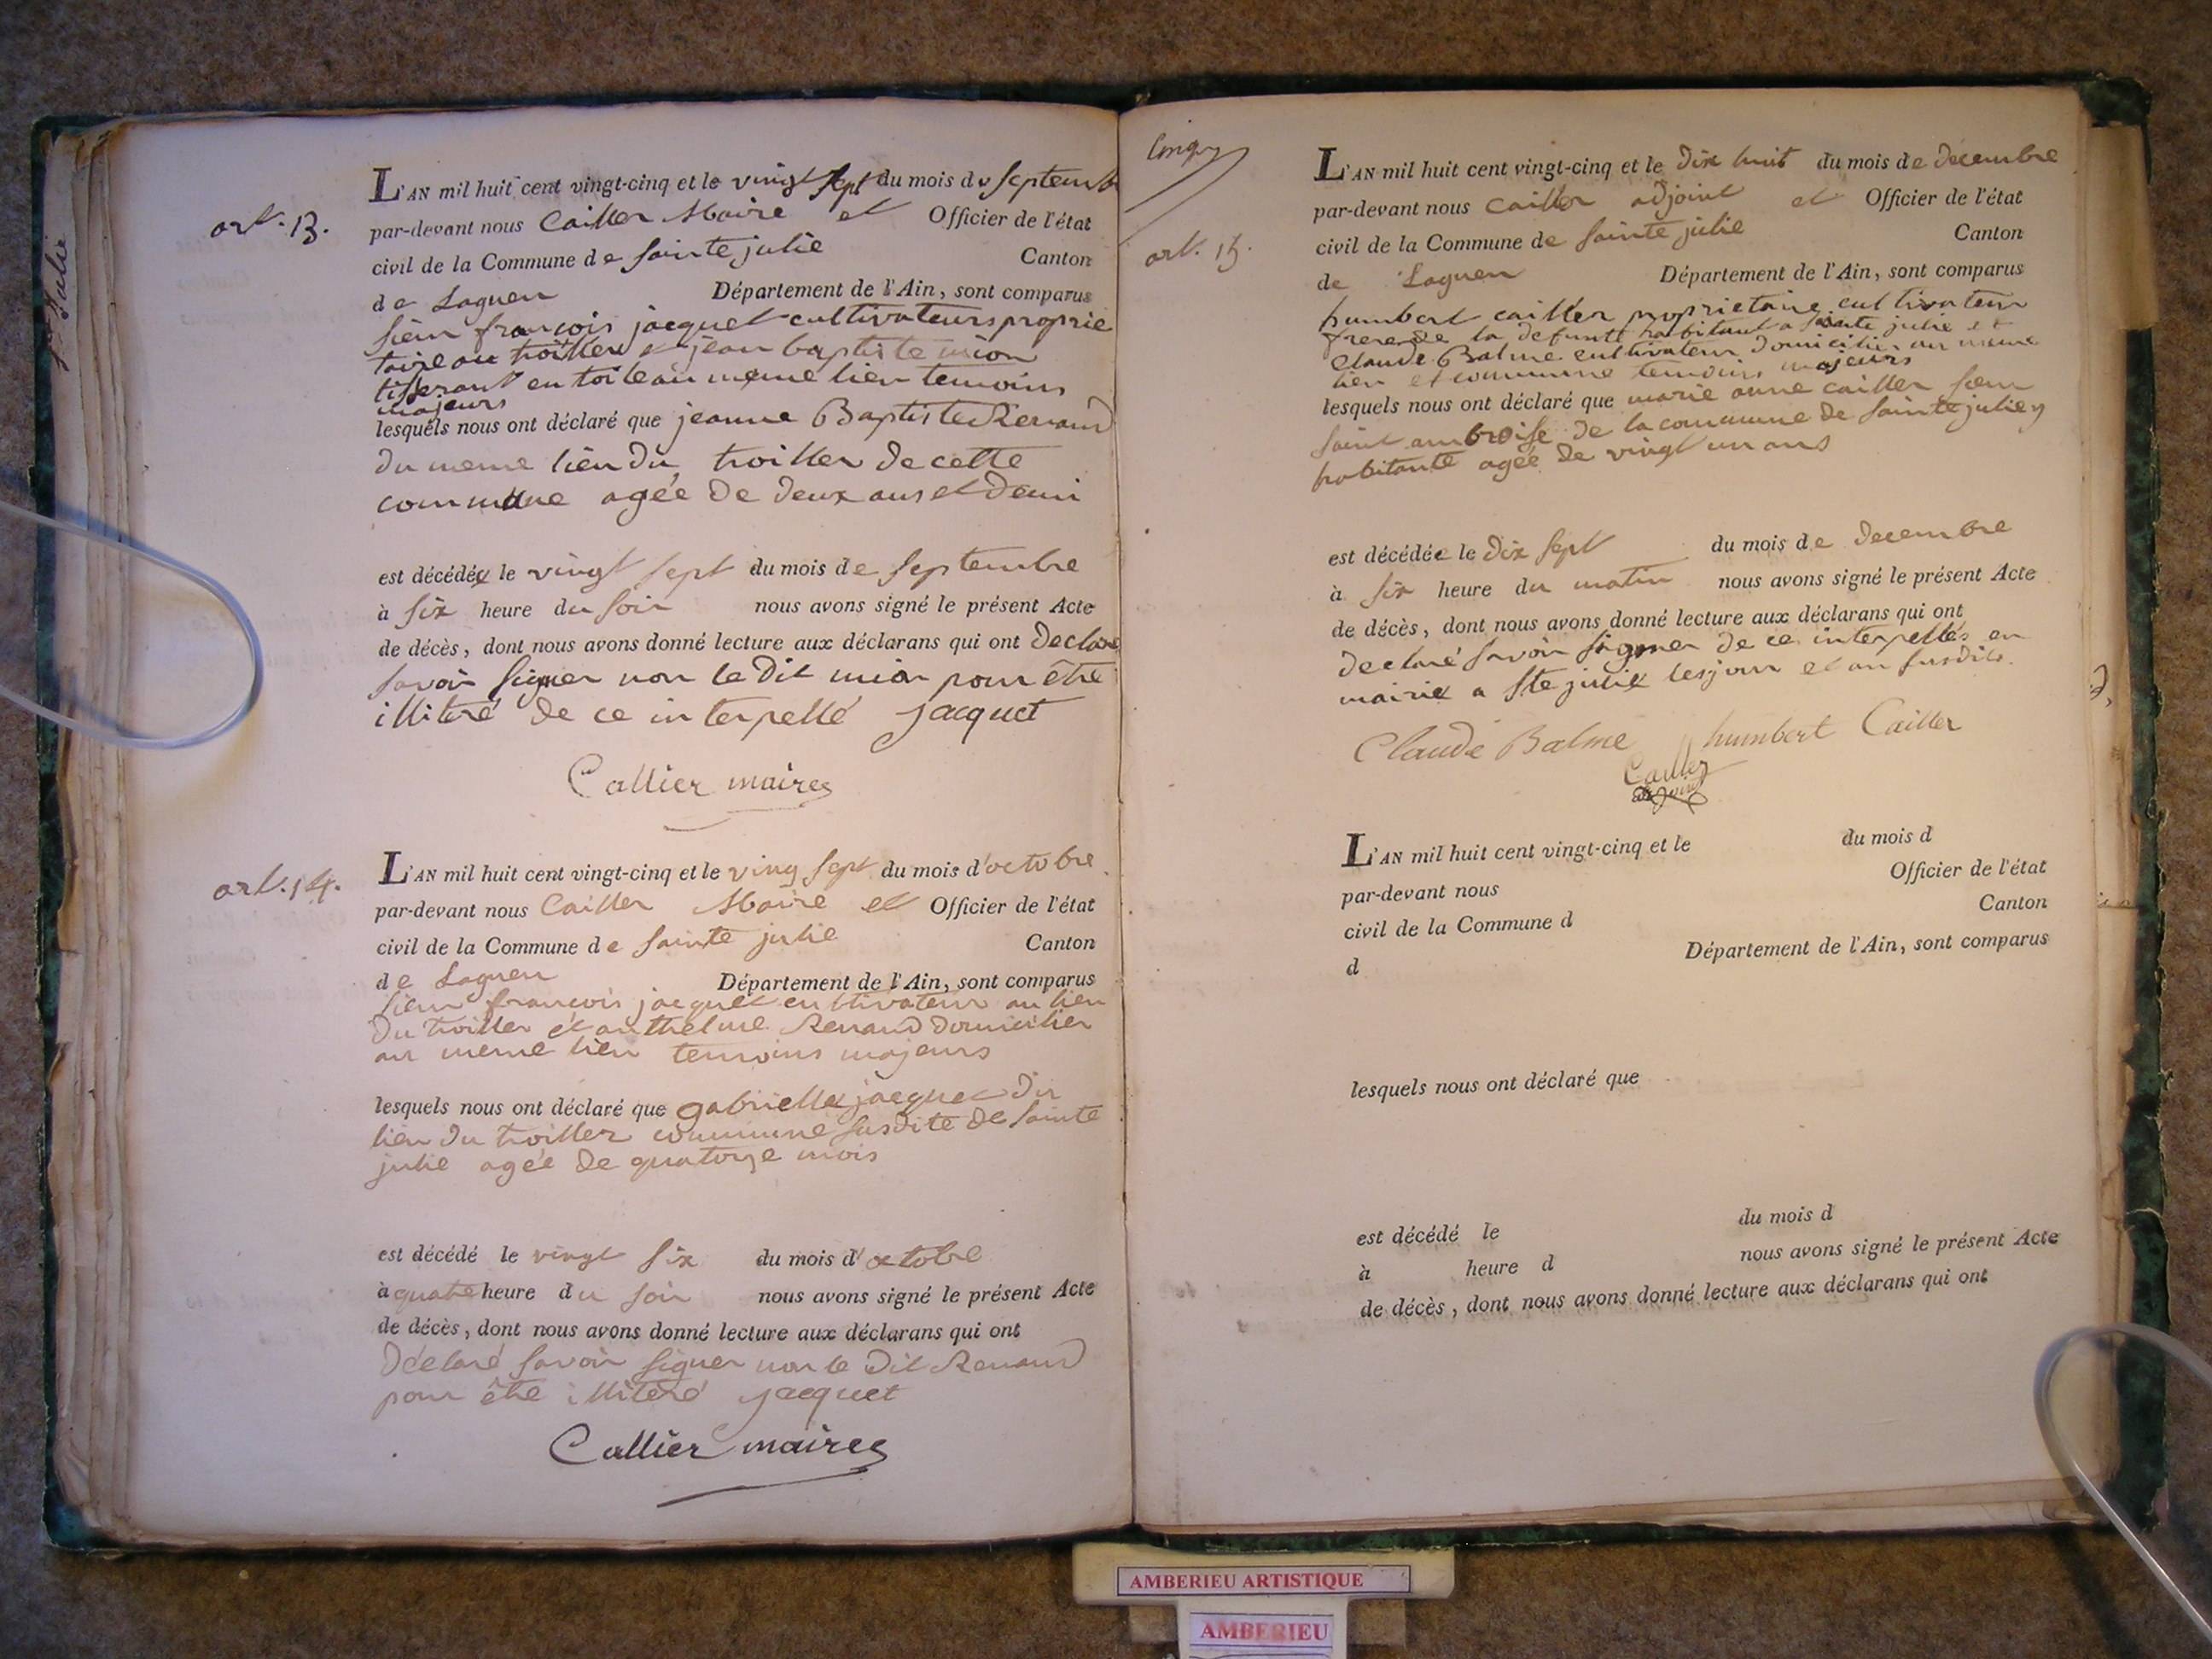 Ste Julie
art. 13.
L'AN mil huit cent vingt-cinq et le vingt sept du mois de septembre
par-devant nous Cailler Maire et Officier de l'état
civil de la Commune de sainte julie Canton
de Lagneu Département de l'Ain, sont comparus
sieur françois jacquet cultivateurs proprie
taire au troiller et jean baptiste mion
tisserant en toile au meme lieu temoins
majeurs
lesquels nous ont déclaré que jeanne Baptiste Renaud
du meme lieu du troiller de cette
commune agée de deux ans et demi
est décédée le vingt sept du mois de septembre
à six heure du soir nous avons signé le présent Acte
de décès, dont nous avons donné lecture aux déclarans qui ont declaré
savoir signer non le dit mion pour être
illitéré de ce interpellé jacquet
Callier maire
art. 14.
L'AN mil huit cent vingt-cinq et le ving sept du mois d'octobre
par-devant nous Cailler Maire et Officier de l'état
civil de la Commune de sainte julie Canton
de Lagneu Département de l'Ain, sont comparus
sieur françois jacquet cultivateur au lieu
du troiller et anthelme Renaud domicilier
au meme lieu temoins majeurs
lesquels nous ont déclaré que gabrielle jacquet du
lieu du troiller commune susdite de sainte
julie agée de quatorze mois
est décédé le vingt six du mois d'octobre
à quatre heure du soir nous avons signé le présent Acte
de décès, dont nous avons donné lecture aux déclarans qui ont
déclaré savoir signer non le dit Renaud
pour être illitéré jacquet
Callier maire
Cinq
art. 15.
L'AN mil huit cent vingt-cinq et le dix huit du mois de décembre
par-devant nous cailler adjoint et Officier de l'état
civil de la Commune de sainte julie Canton
de Lagneu Département de l'Ain, sont comparus
humbert cailler proprietaire cultivateur
frere de la defunte habitant a sainte julie et
Claude Balme cultivateur domicilier au meme
lieu et commune temoins majeurs
lesquels nous ont déclaré que marie anne cailler soeur
saint ambroise de la commune de sainte julie y
habitante agée de vingt un ans
est décédée le dix sept du mois de decembre
à six heure du matin nous avons signé le présent Acte
de décès, dont nous avons donné lecture aux déclarans qui ont
declaré savoir signer de ce interpellés en
mairie a Ste julie les jour et an susdits.
Claude Balme humbert Cailler
Cailler
adjoint
L'AN mil huit cent vingt-cinq et le du mois d
par-devant nous Officier de l'état
civil de la Commune d Canton
d Département de l'Ain, sont comparus
lesquels nous ont déclaré que
est décédé le du mois d
à heure d nous avons signé le présent Acte
de décès, dont nous avons donné lecture aux déclarans qui ont
AMBERIEU ARTISTIQUE
AMBERIEU